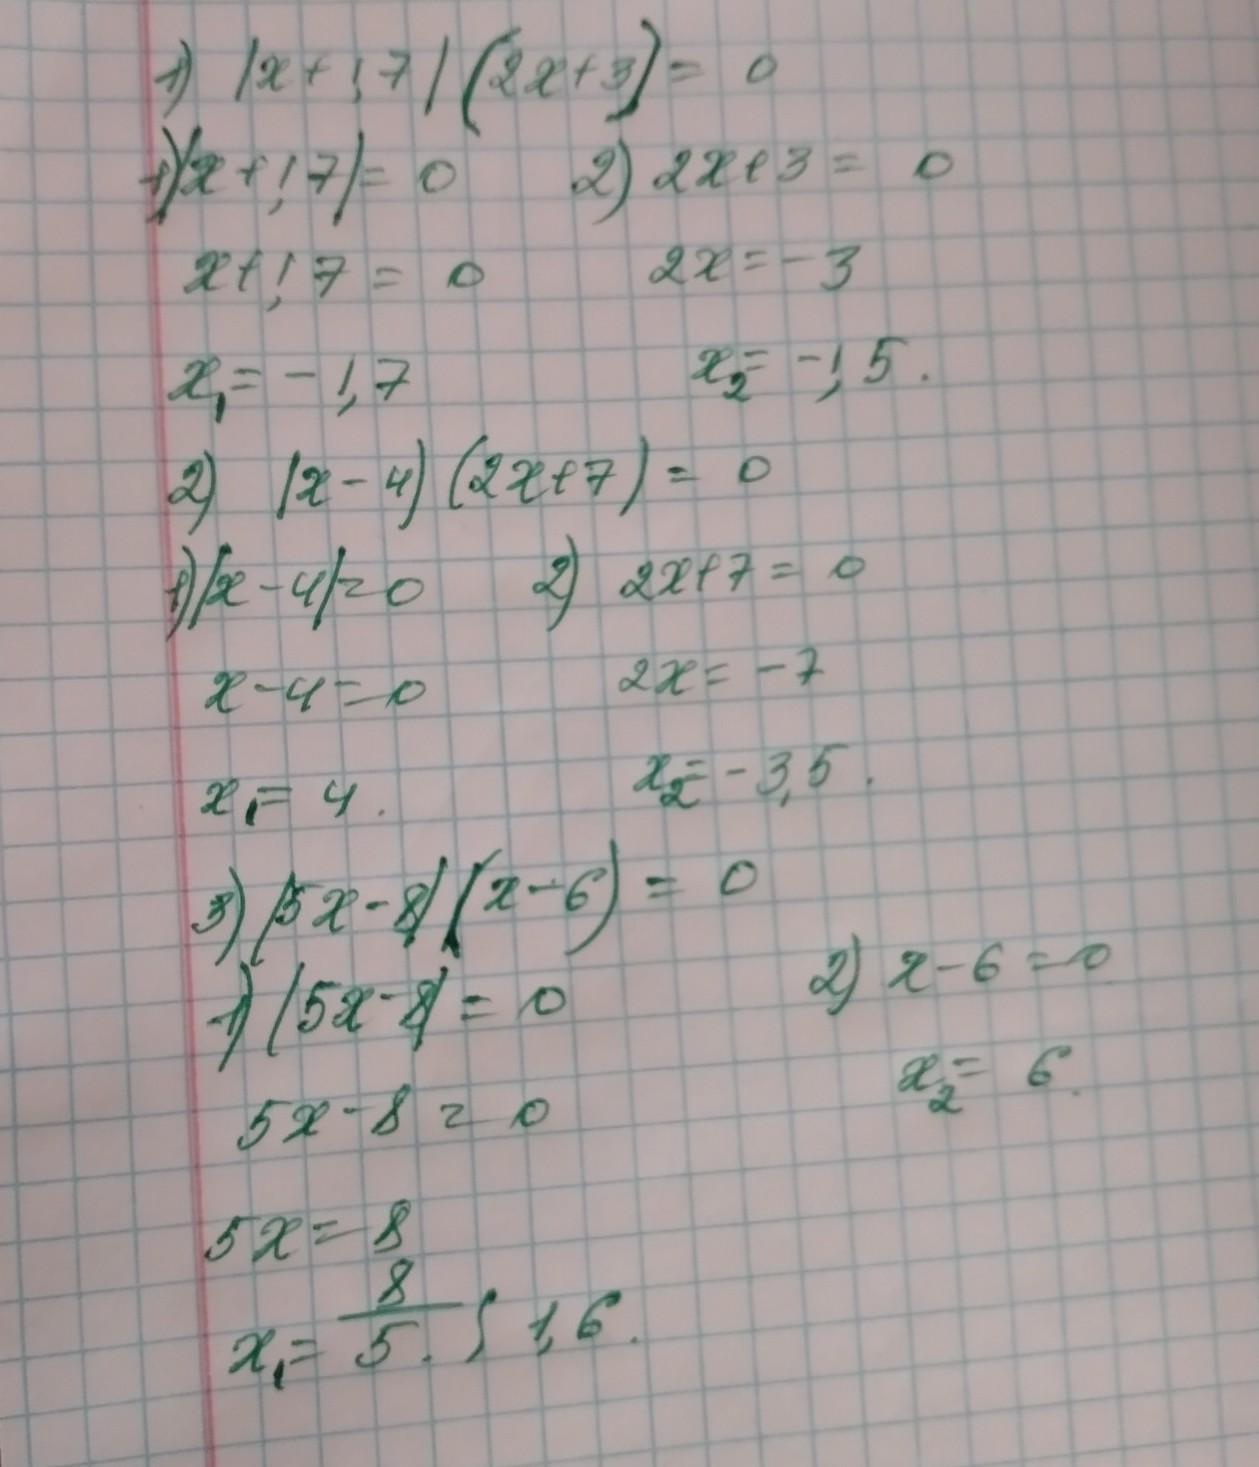 1) |x+1,7|(2x+3)= 0
1)|x+1,7|= 0 2) 2x+3= 0
x+1,7= 0 2x=-3
x₁=-1,7 x₂=-1,5.
2) |x-4)(2x+7)= 0
1)|x-4|=0 2) 2x+7=0
x-4=0 2x=-7
x₁=4. x₂=-3,5.
3) |5x-8|(x-6)= 0
1) |5x-8|= 0 2) x-6=0
5x-8=0 x₂= 6.
5x=8
x₁= 8/5. ; 1,6.